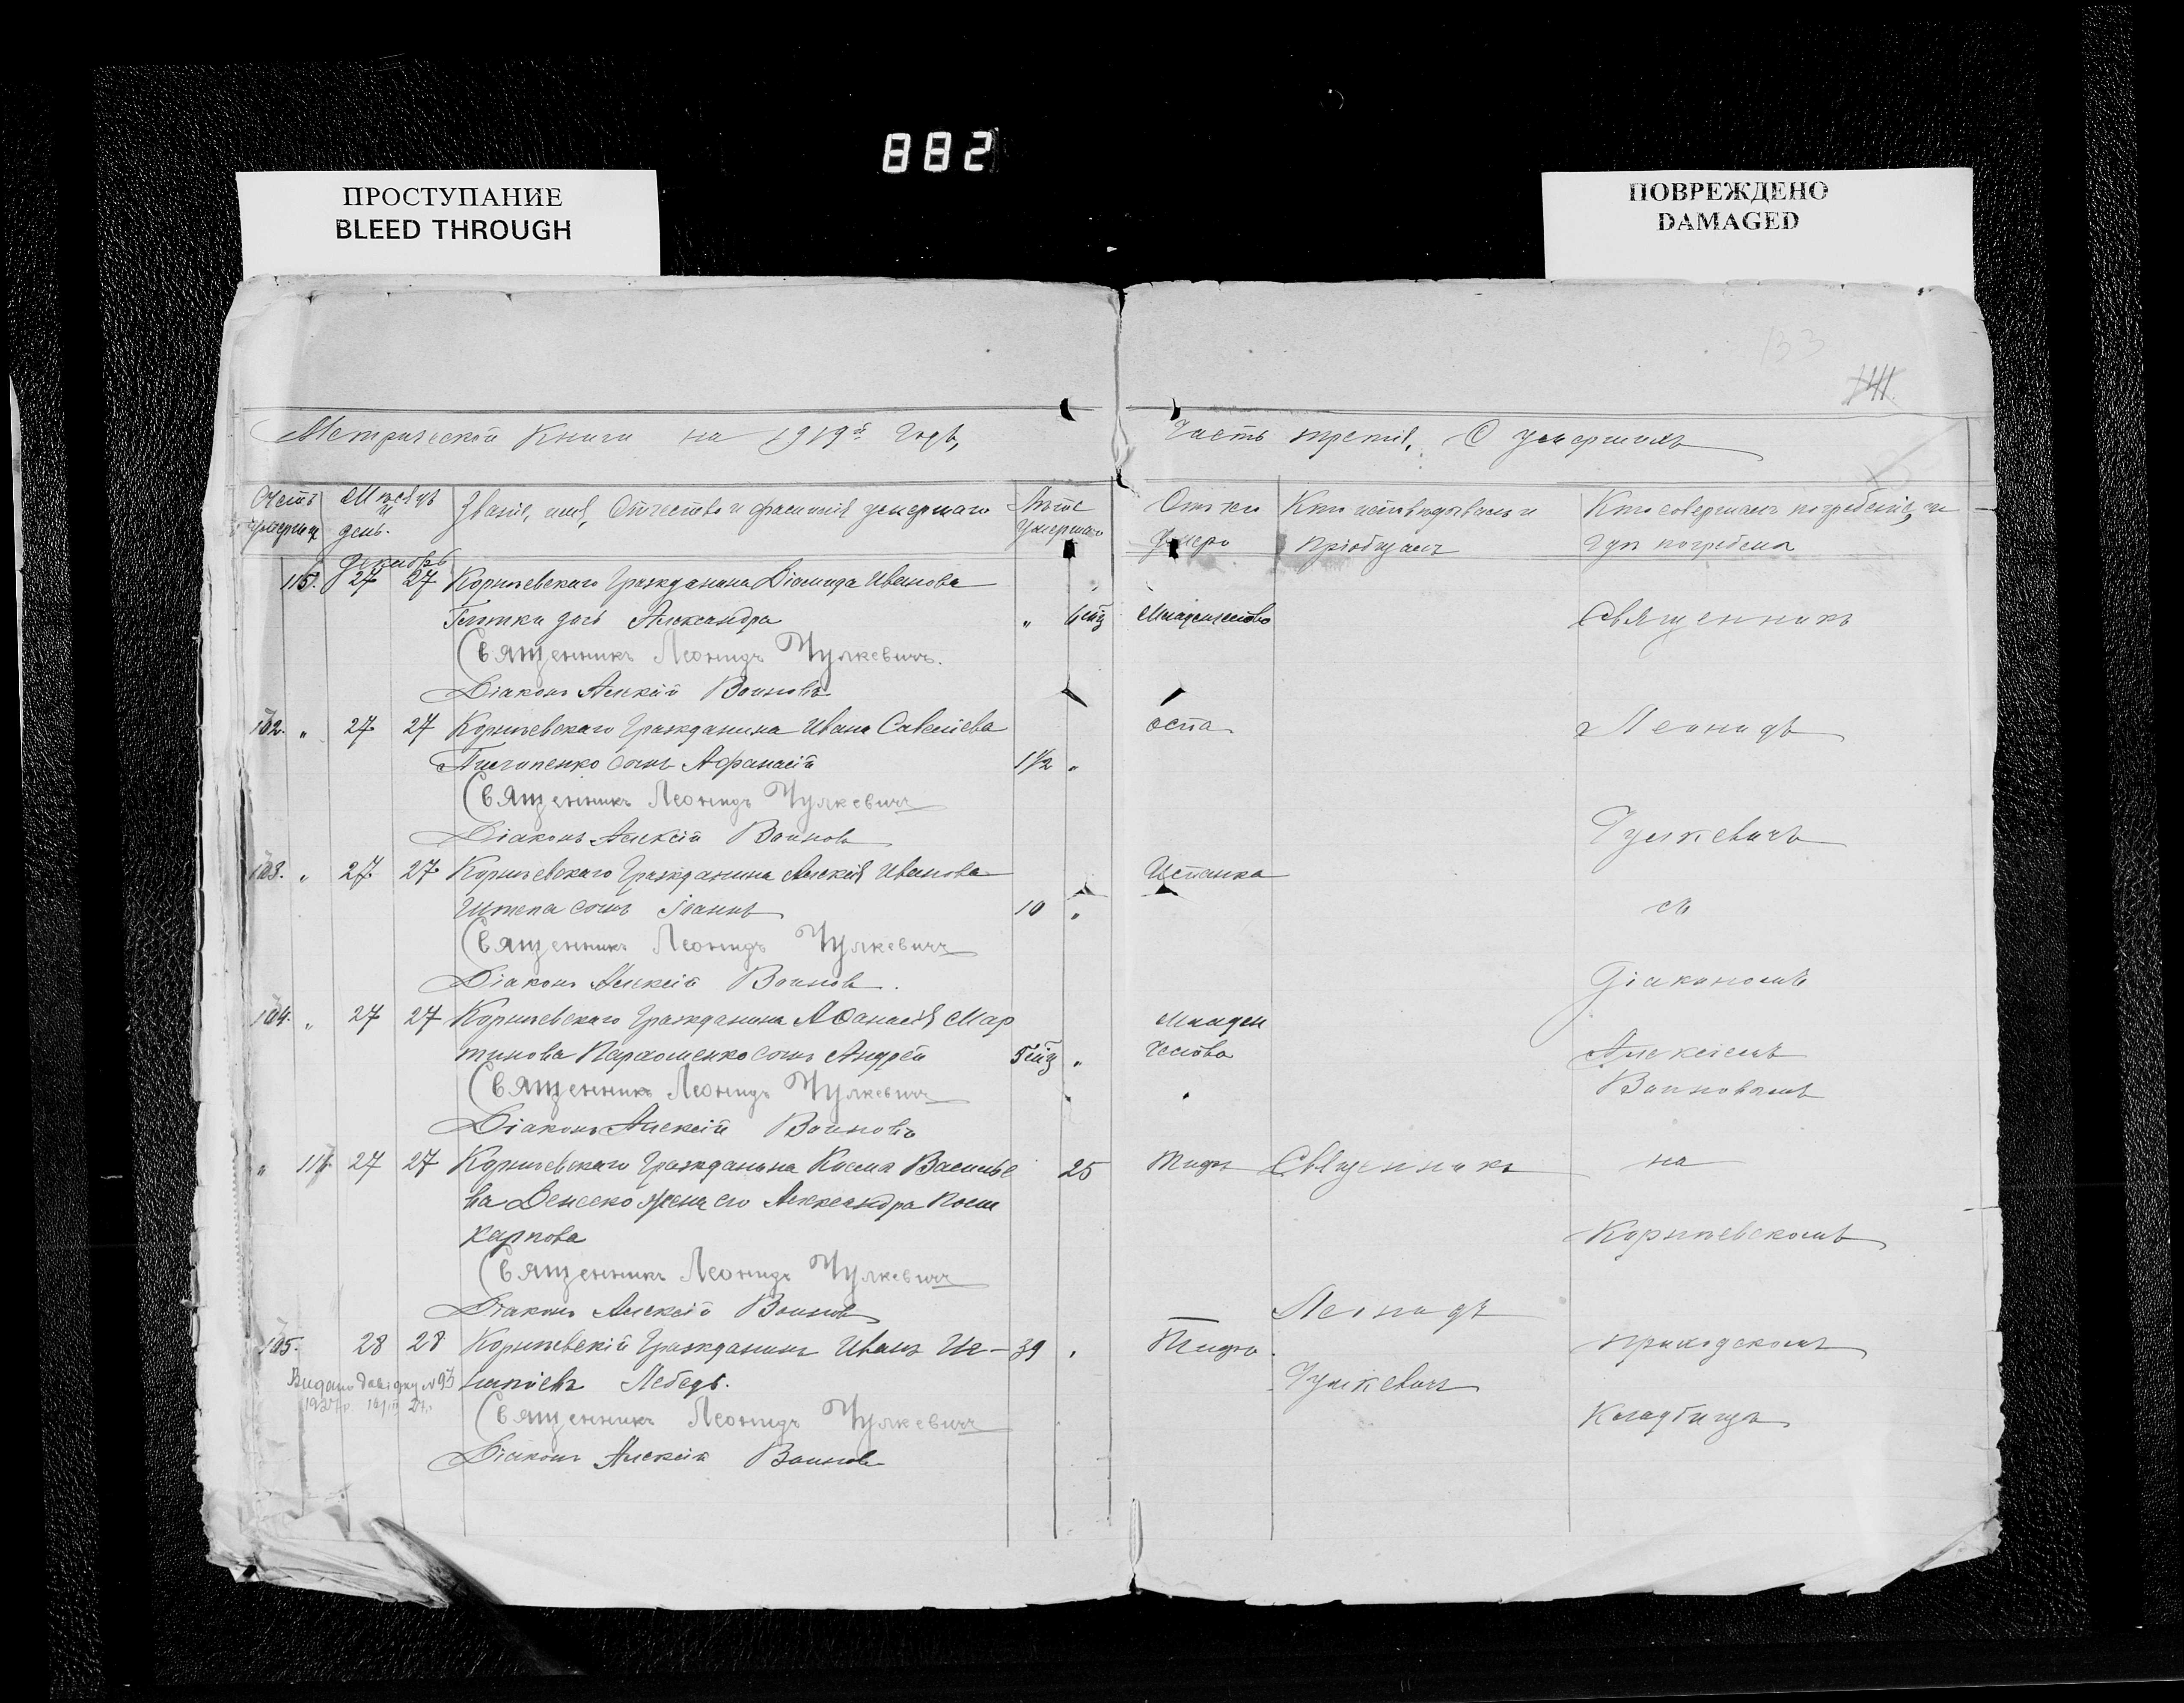 882
ПРОСТУПАНИЕ
BLEED THROUGH
ПОВРЕЖДЕНО
DAMAGED
133
141
Метрической Книги на 1919й годъ,
Часть третія, О умершихъ
Счетъ умершихъ
Мѣсяцъ и день.
Званіе, имя, Отчество и фамилія умершаго
Лѣто Умершаго
Отъ чего Умеръ
Кто исповѣдывалъ и пріобщалъ
Кто совершалъ погребеніе, и гдѣ погребенъ
Декабрь
115. 27 27 Гражданина Діомида Иванова
дочь Александра " 6 Младенчество
Священникъ Леонидъ Чулкевичъ.
Діаконъ Алексій Воиновъ
102. " 27 27 Гражданина Ивана Савеліева оспа
сынъ Афанасій 1 1/2 "
Священникъ Леонидъ Чулкевичъ
Діаконъ Алексій Воиновъ
103. " 27 27 Гражданина Алексія Иванова Испанка
Штепа сынъ Іоаннъ 10 "
Священникъ Леонидъ Чулкевичъ
Діаконъ Алексій Воиновъ.
104. " 27 27 Гражданина Аѳанасія Мар Младен
тинова Пархоменко сынъ Андрей "  чества
Священникъ Леонидъ Чулкевичъ
Діаконъ Алексій Воиновъ
" 116. 27 27 Гражданина Косма Василье 25 Тифъ
ва жена его Александра
карпова
Священникъ Леонидъ Чулкевичъ
Діаконъ Алексій Воиновъ
105. 28 28 Гражданинъ Иванъ Иг- 39 Тифъ.
натіевъ Лебедь.
Видано довідку № 93
Священникъ Леонидъ Чулкевичъ
Діаконъ Алексій Воиновъ
Священникъ
Леонидъ
Чулкевичъ
Священникъ
Леонидъ
Чулкевичъ
съ
Діакономъ
Алексіемъ
Воиновымъ
на
приходскомъ
Кладбищѣ